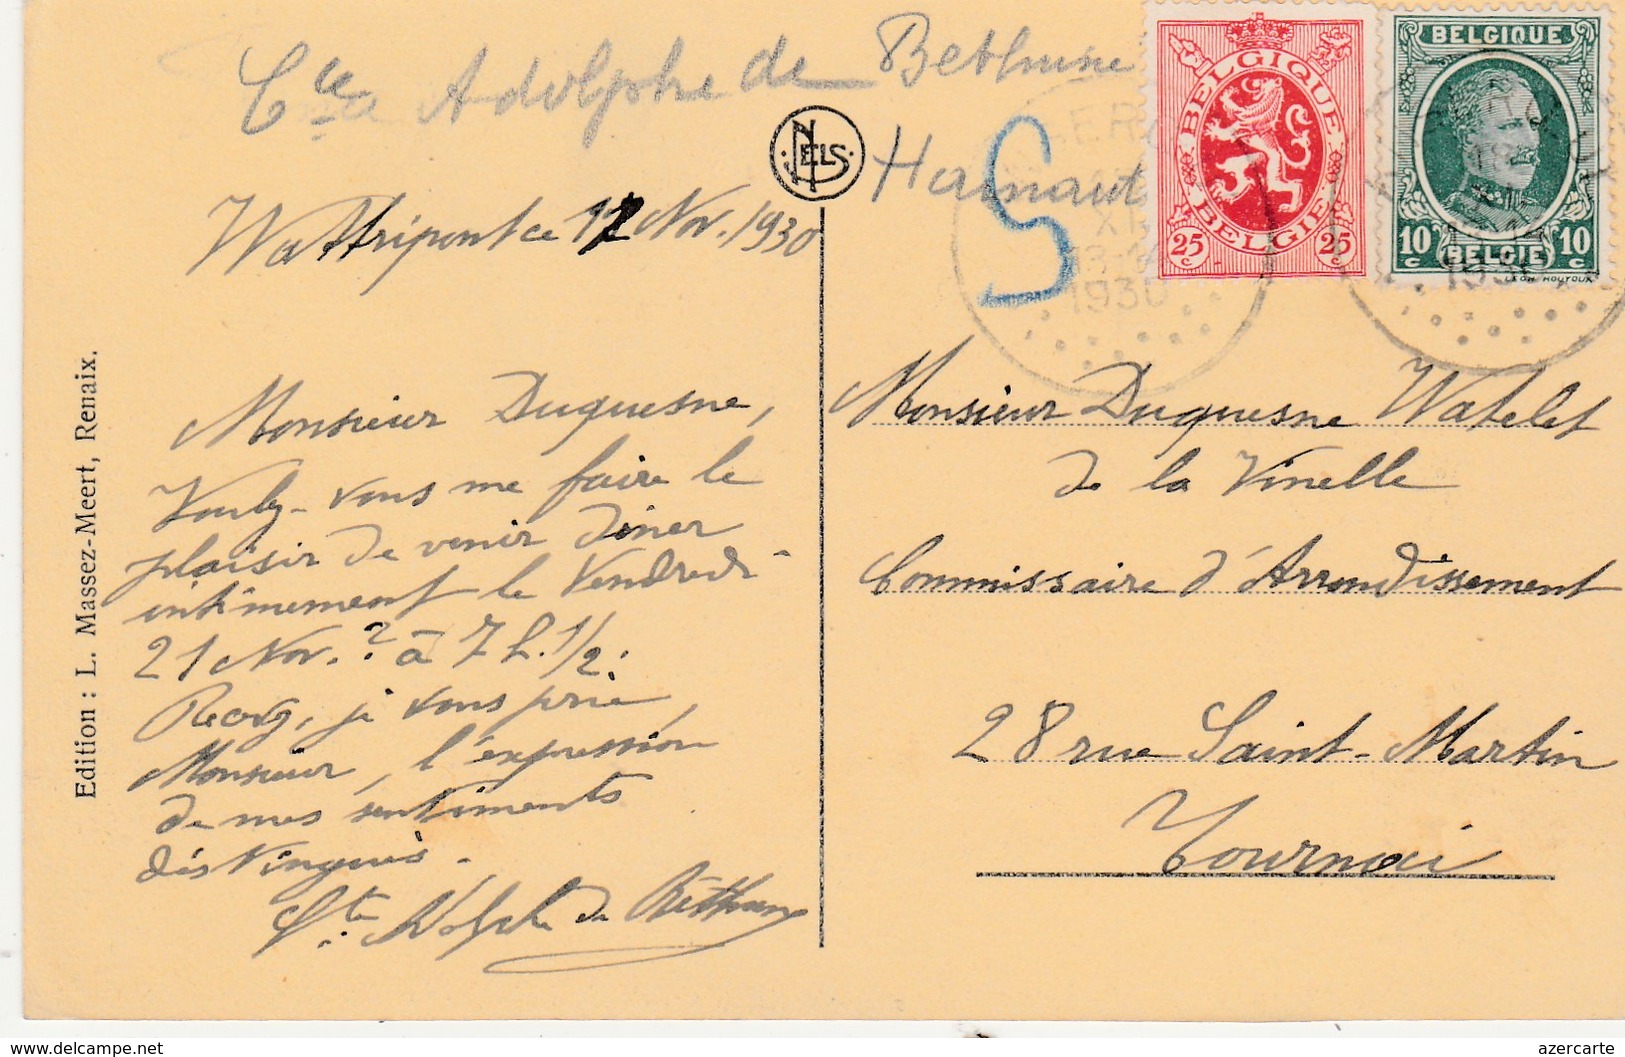 Cte Adolphe de Bethune
Hainaut
NELS
S
Wattripont ce 17 Nov. 1930
BELGIQUE
BELGIE
25 c
25 c
BELGIQUE
10 c
BELGIE
10 c
1930
1930
Monsieur Duquesne,
Voulez-vous me faire le
plaisir de venir dîner
intimement le Vendredi
21 Nov.? à 7 h. 1/2.
Recvez, je vous prie,
Monsieur, l'expression
de mes sentiments
distingués.
Cte. Adolphe de Béthune
Monsieur Duquesne Watelet
de la Vinelle
Commissaire d'Arrondissement
28 rue Saint-Martin
Tournai
Edition : L. Massez-Meert, Renaix.
www.delcampe.net
azercarte